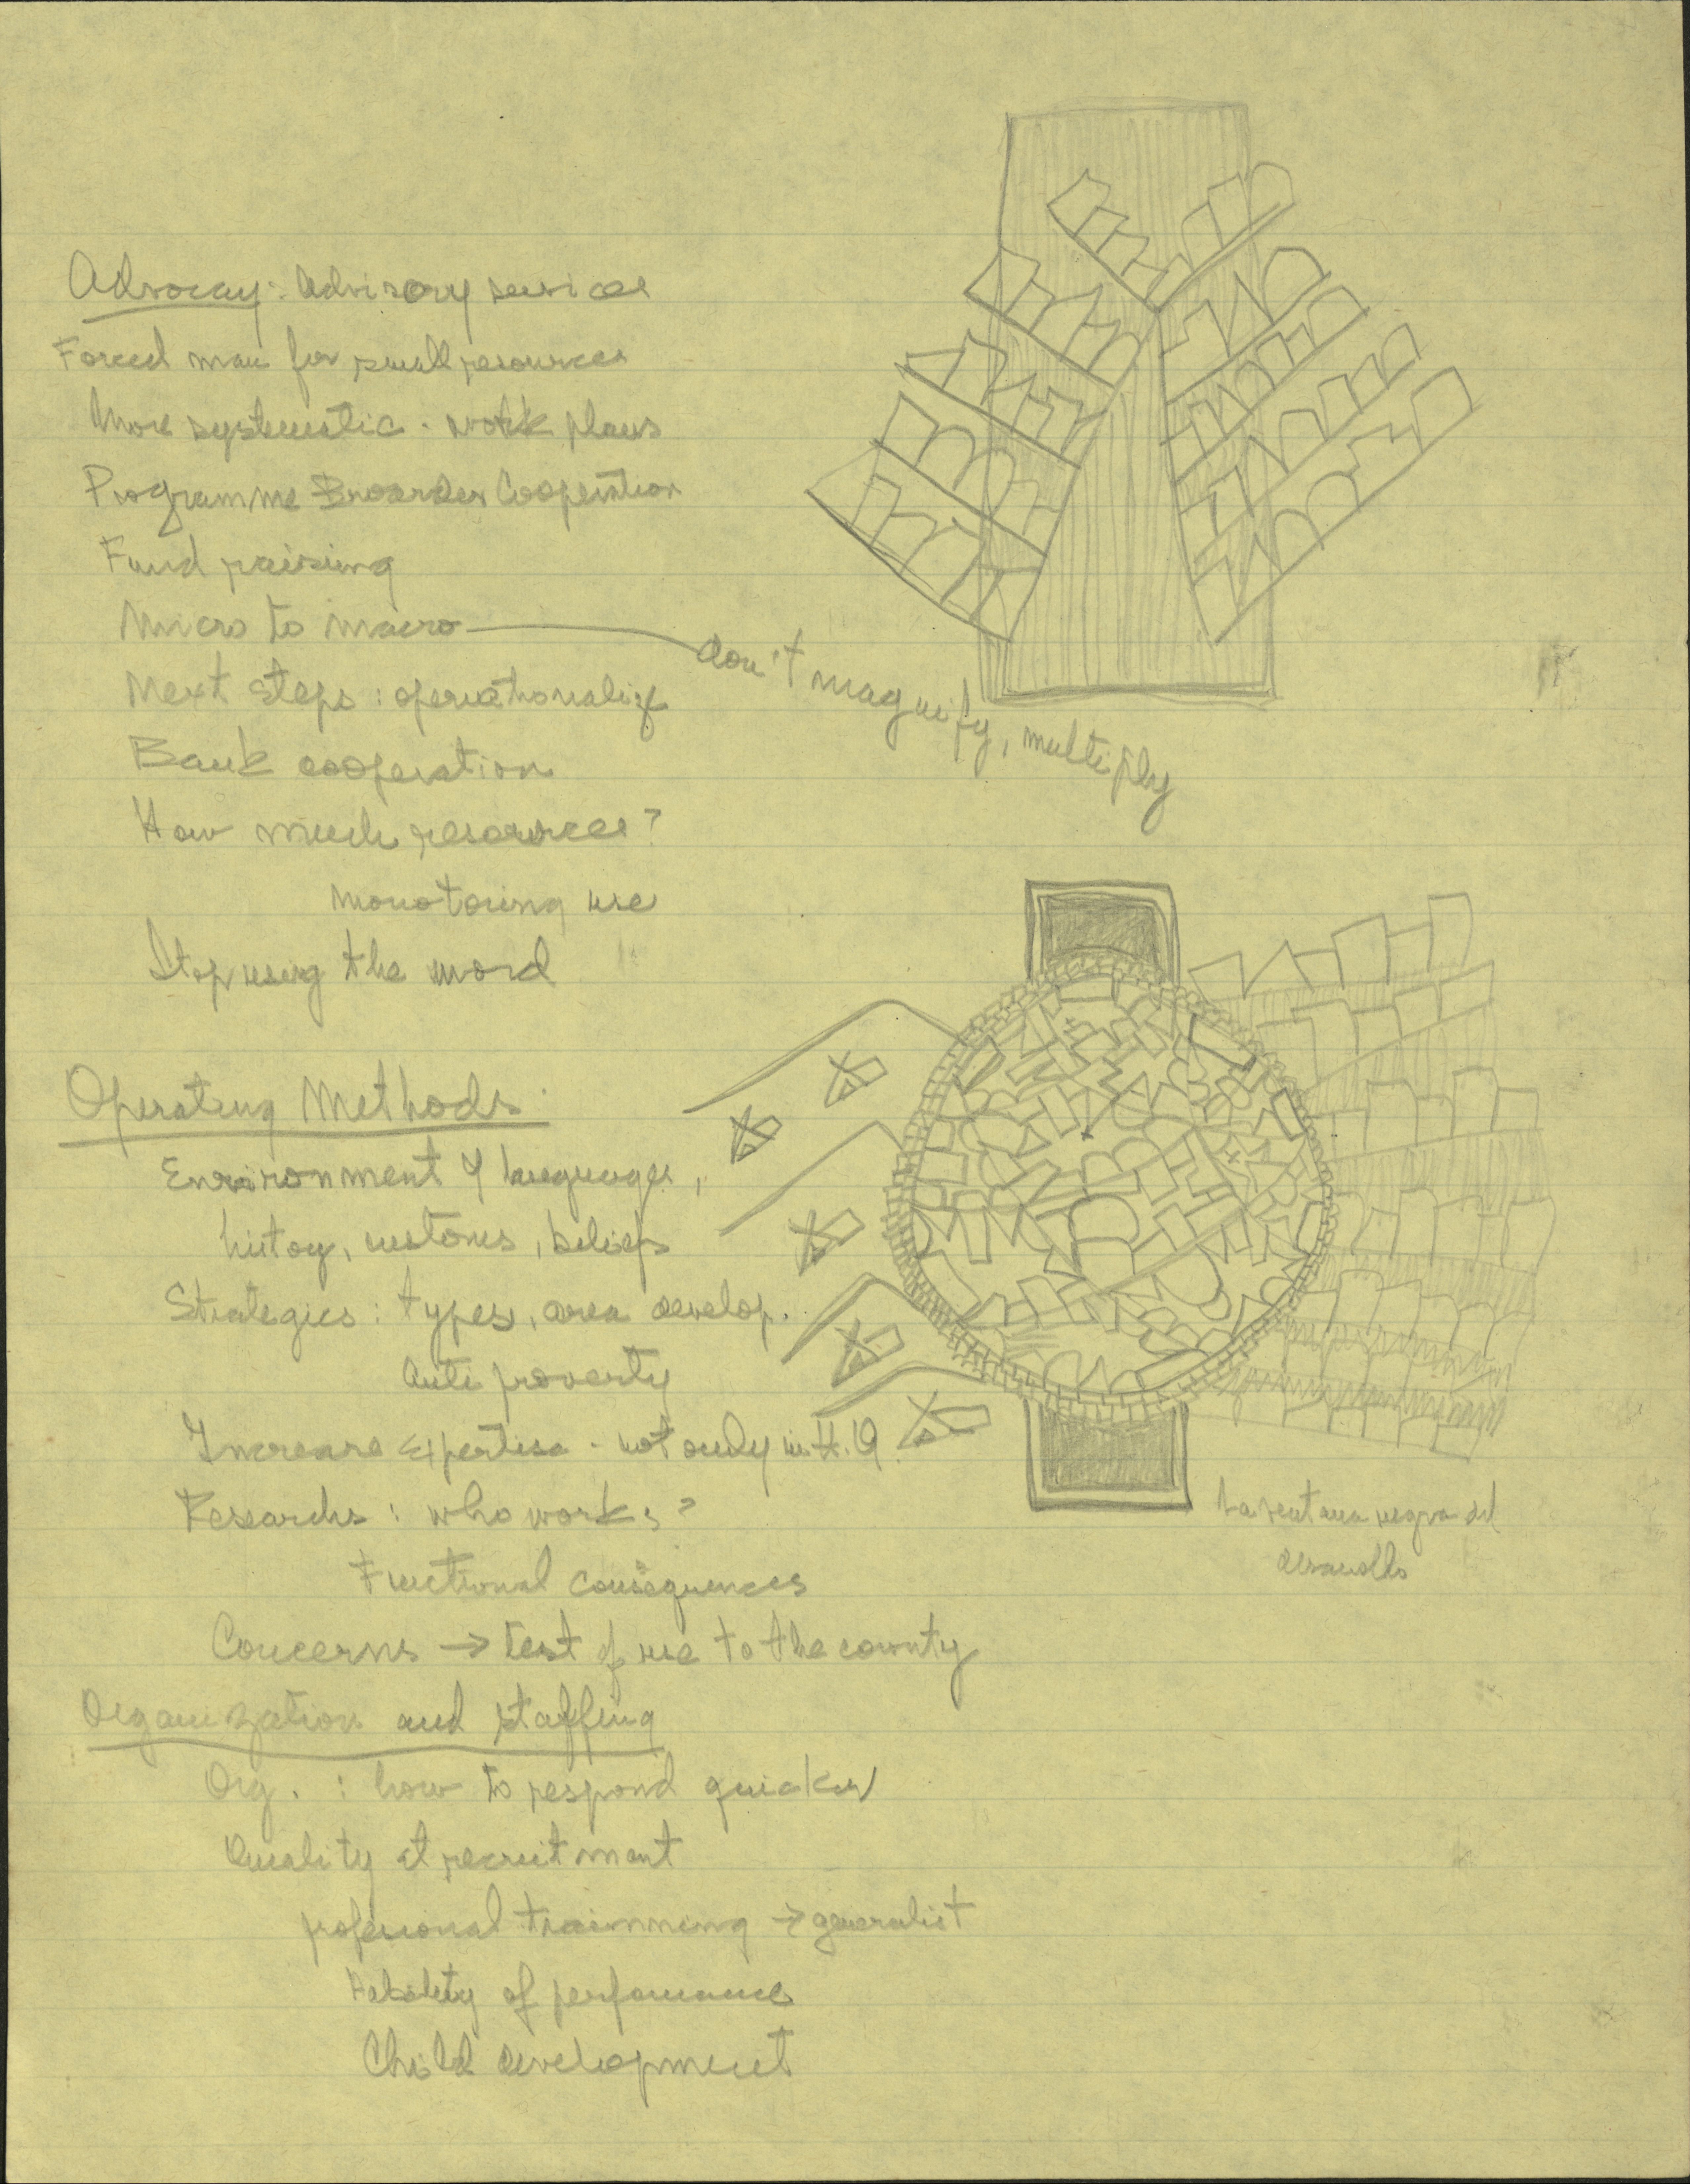 Advocay: Advisory services
Forced man for small resources
More systematic - work plans
Programme Broarder Cooperation
Fund raising
Micro to macro
don't magnify, multiply
Next steps: operationalize
Bank cooperation
How much resources?
monotoring use
Stop using the word
Operating Methods
Environment of languages,
history, customs, beliefs
Strategies: types, area develop.
Anti proverty
Increase Expertise - not only in H.Q.
Research: who works?
Functional consequences
Concerns → test of use to the county
Organization and staffing
Org. : how to respond quicker
Quality et recruitment
profesional trainning → generalist
of performance
Child development
La ventana negra del
desarrollo